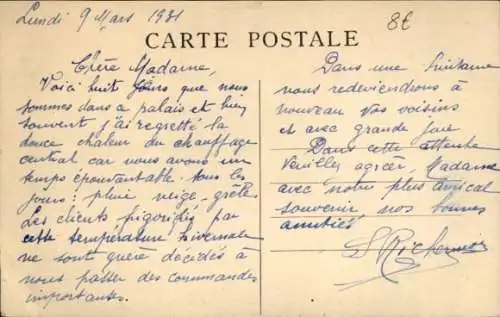 Lundi 9 Mars 1931
8€
CARTE POSTALE
Chère Madame,
Voici huit jours que nous
sommes dans a palais et bien
souvent j'ai regretté la
douce chaleur du chauffage
central car nous avons un
temps épouvantable tous les
jours : pluie, neige, grêle
Les clients frigorifiés par
cette température hivernale
ne sont guère décidés à
nous passer des commandes
importantes.
Dans une huitaine
nous redeviendrons à
nouveau vos voisins
et avec grande joie
Dans cette attente
Veuillez agréer, Madame
avec notre plus amical
souvenir nos bonnes
amitiés